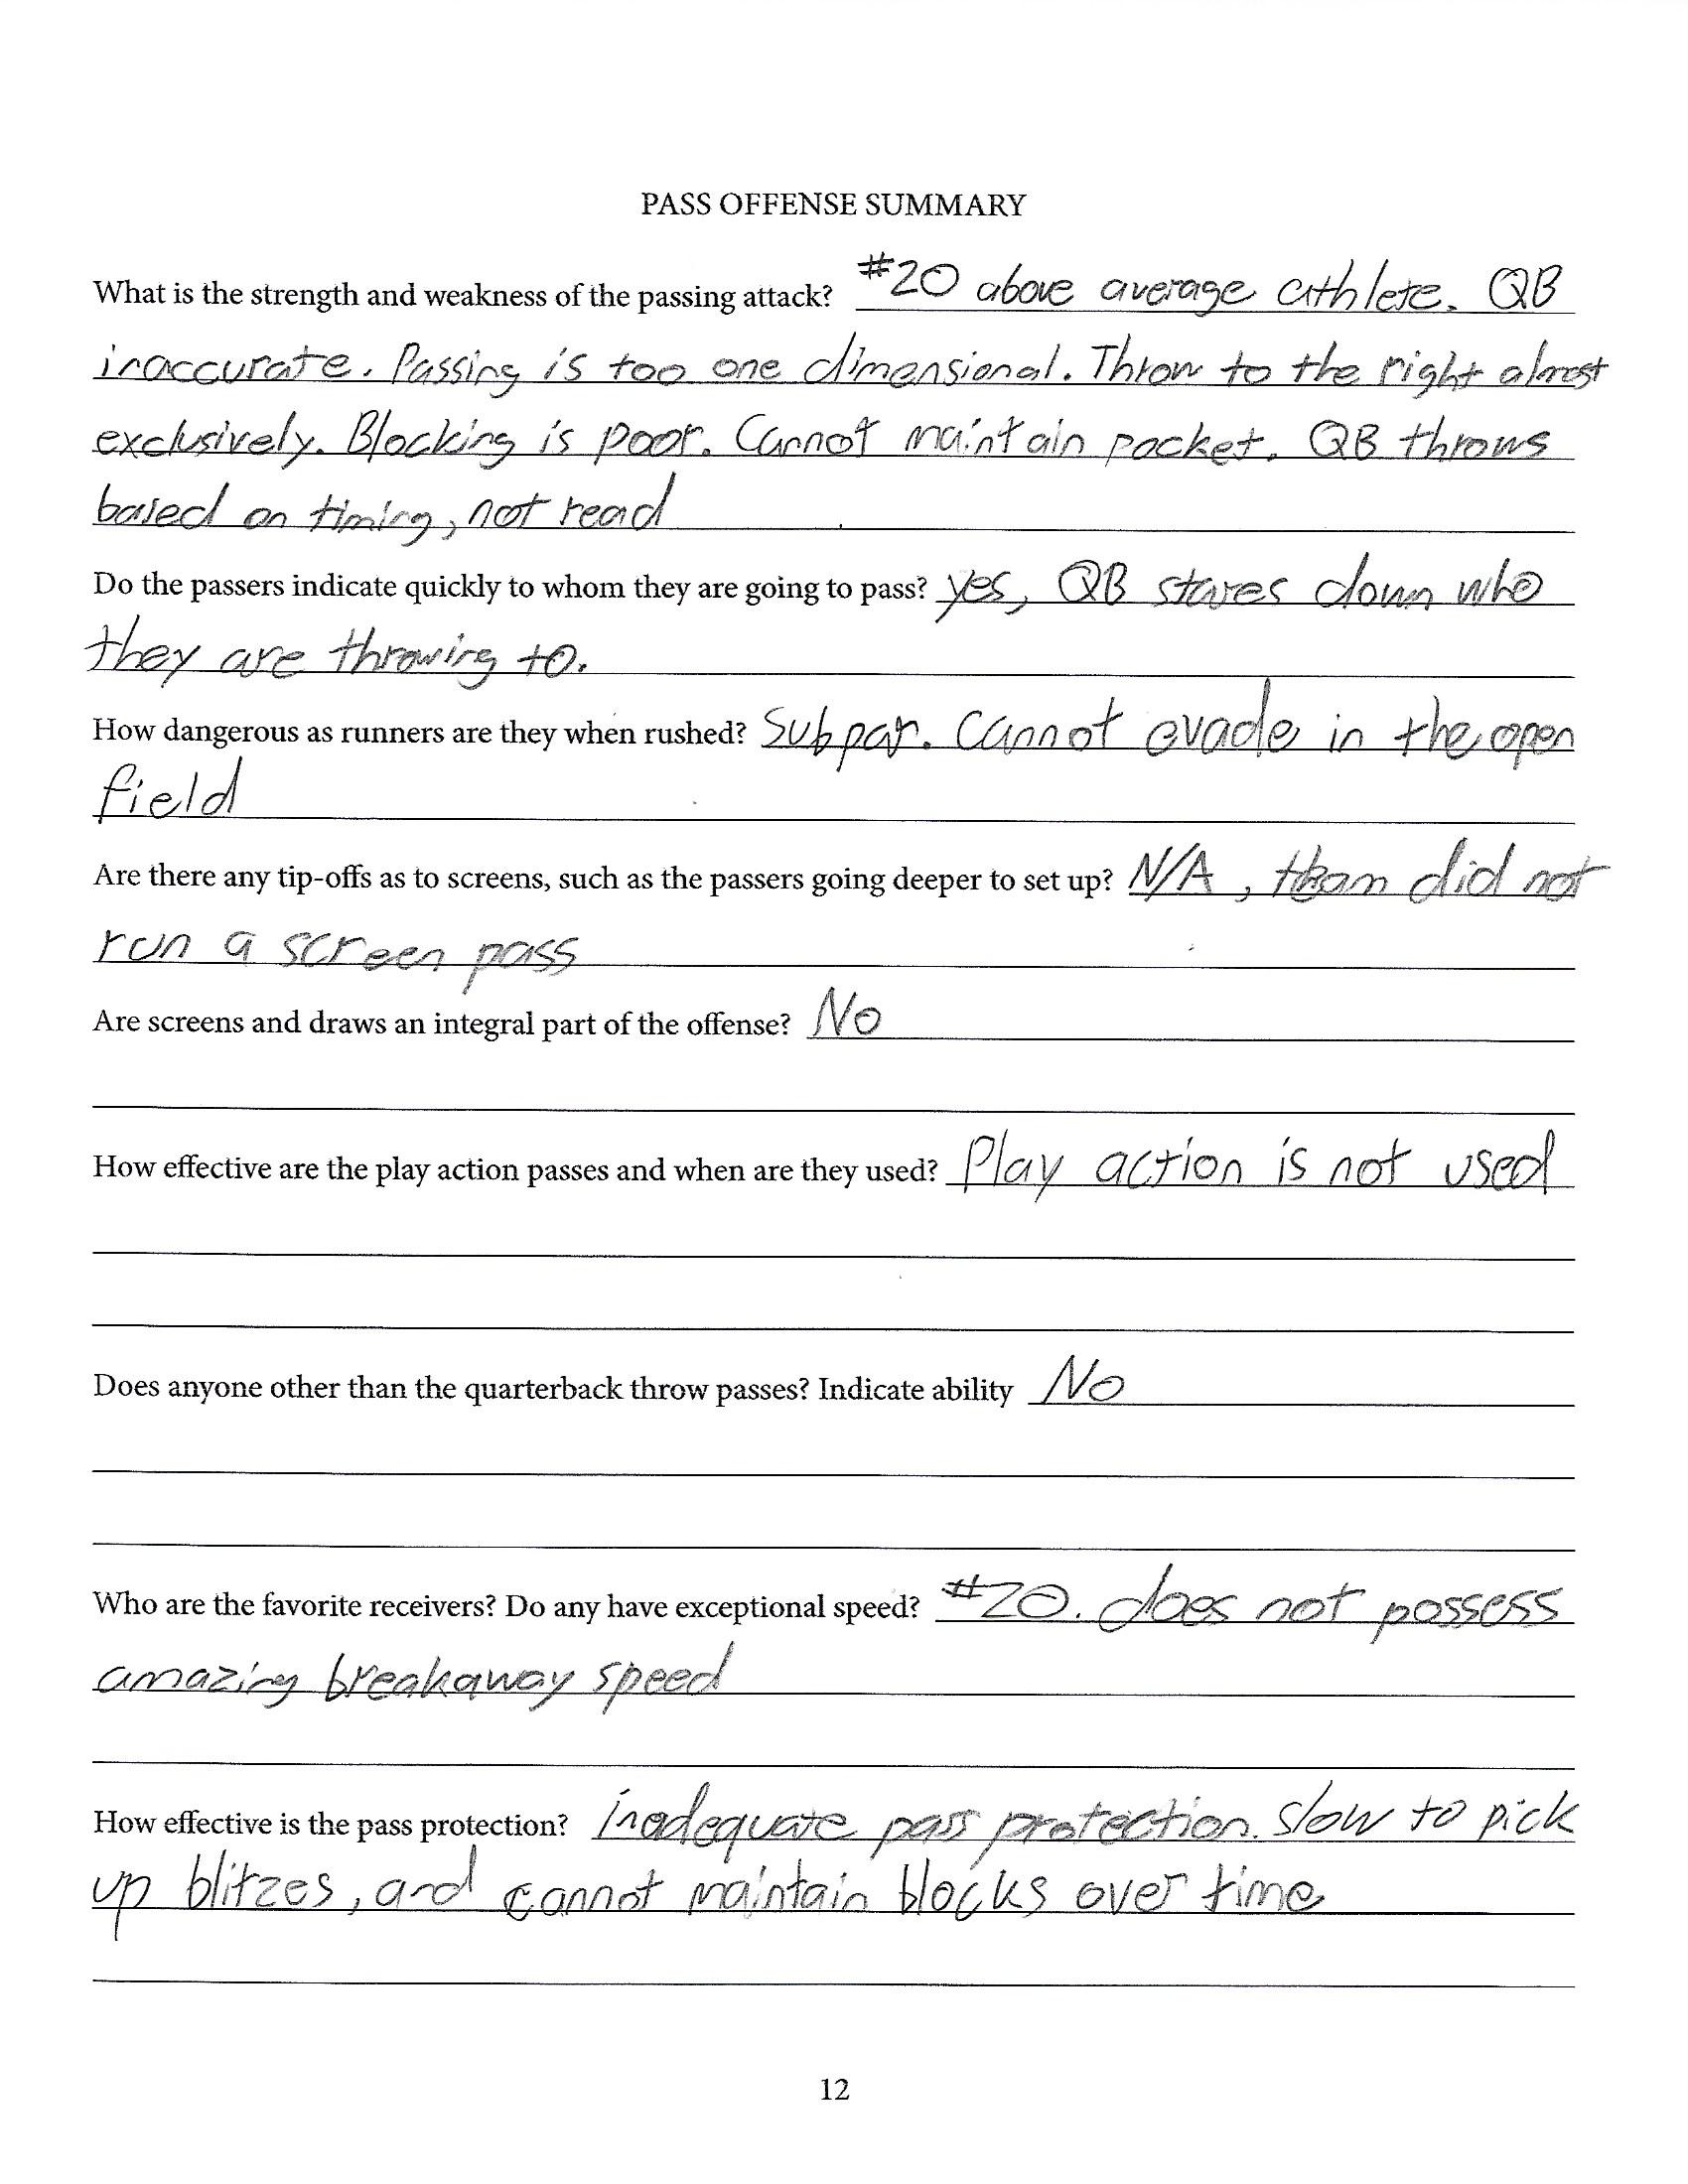 PASS OFFENSE SUMMARY
What is the strength and weakness of the passing attack? #20 above average athlete. QB
inaccurate. Passing is too one dimensional. Throw to the right almost
exclusively. Blocking is poor. Cannot maintain pocket. QB throws
based on timing, not read
Do the passers indicate quickly to whom they are going to pass? yes, QB stares down who
they are throwing to.
How dangerous as runners are they when rushed? Subpar. Cannot evade in the open
field
Are there any tip-offs as to screens, such as the passers going deeper to set up? N/A, team did not
run a screen pass
Are screens and draws an integral part of the offense? No
How effective are the play action passes and when are they used? Play action is not used
Does anyone other than the quarterback throw passes? Indicate ability No
Who are the favorite receivers? Do any have exceptional speed? #20. does not possess
amazing breakaway speed
How effective is the pass protection? inadequate pass protection. slow to pick
up blitzes, and cannot maintain blocks over time
12